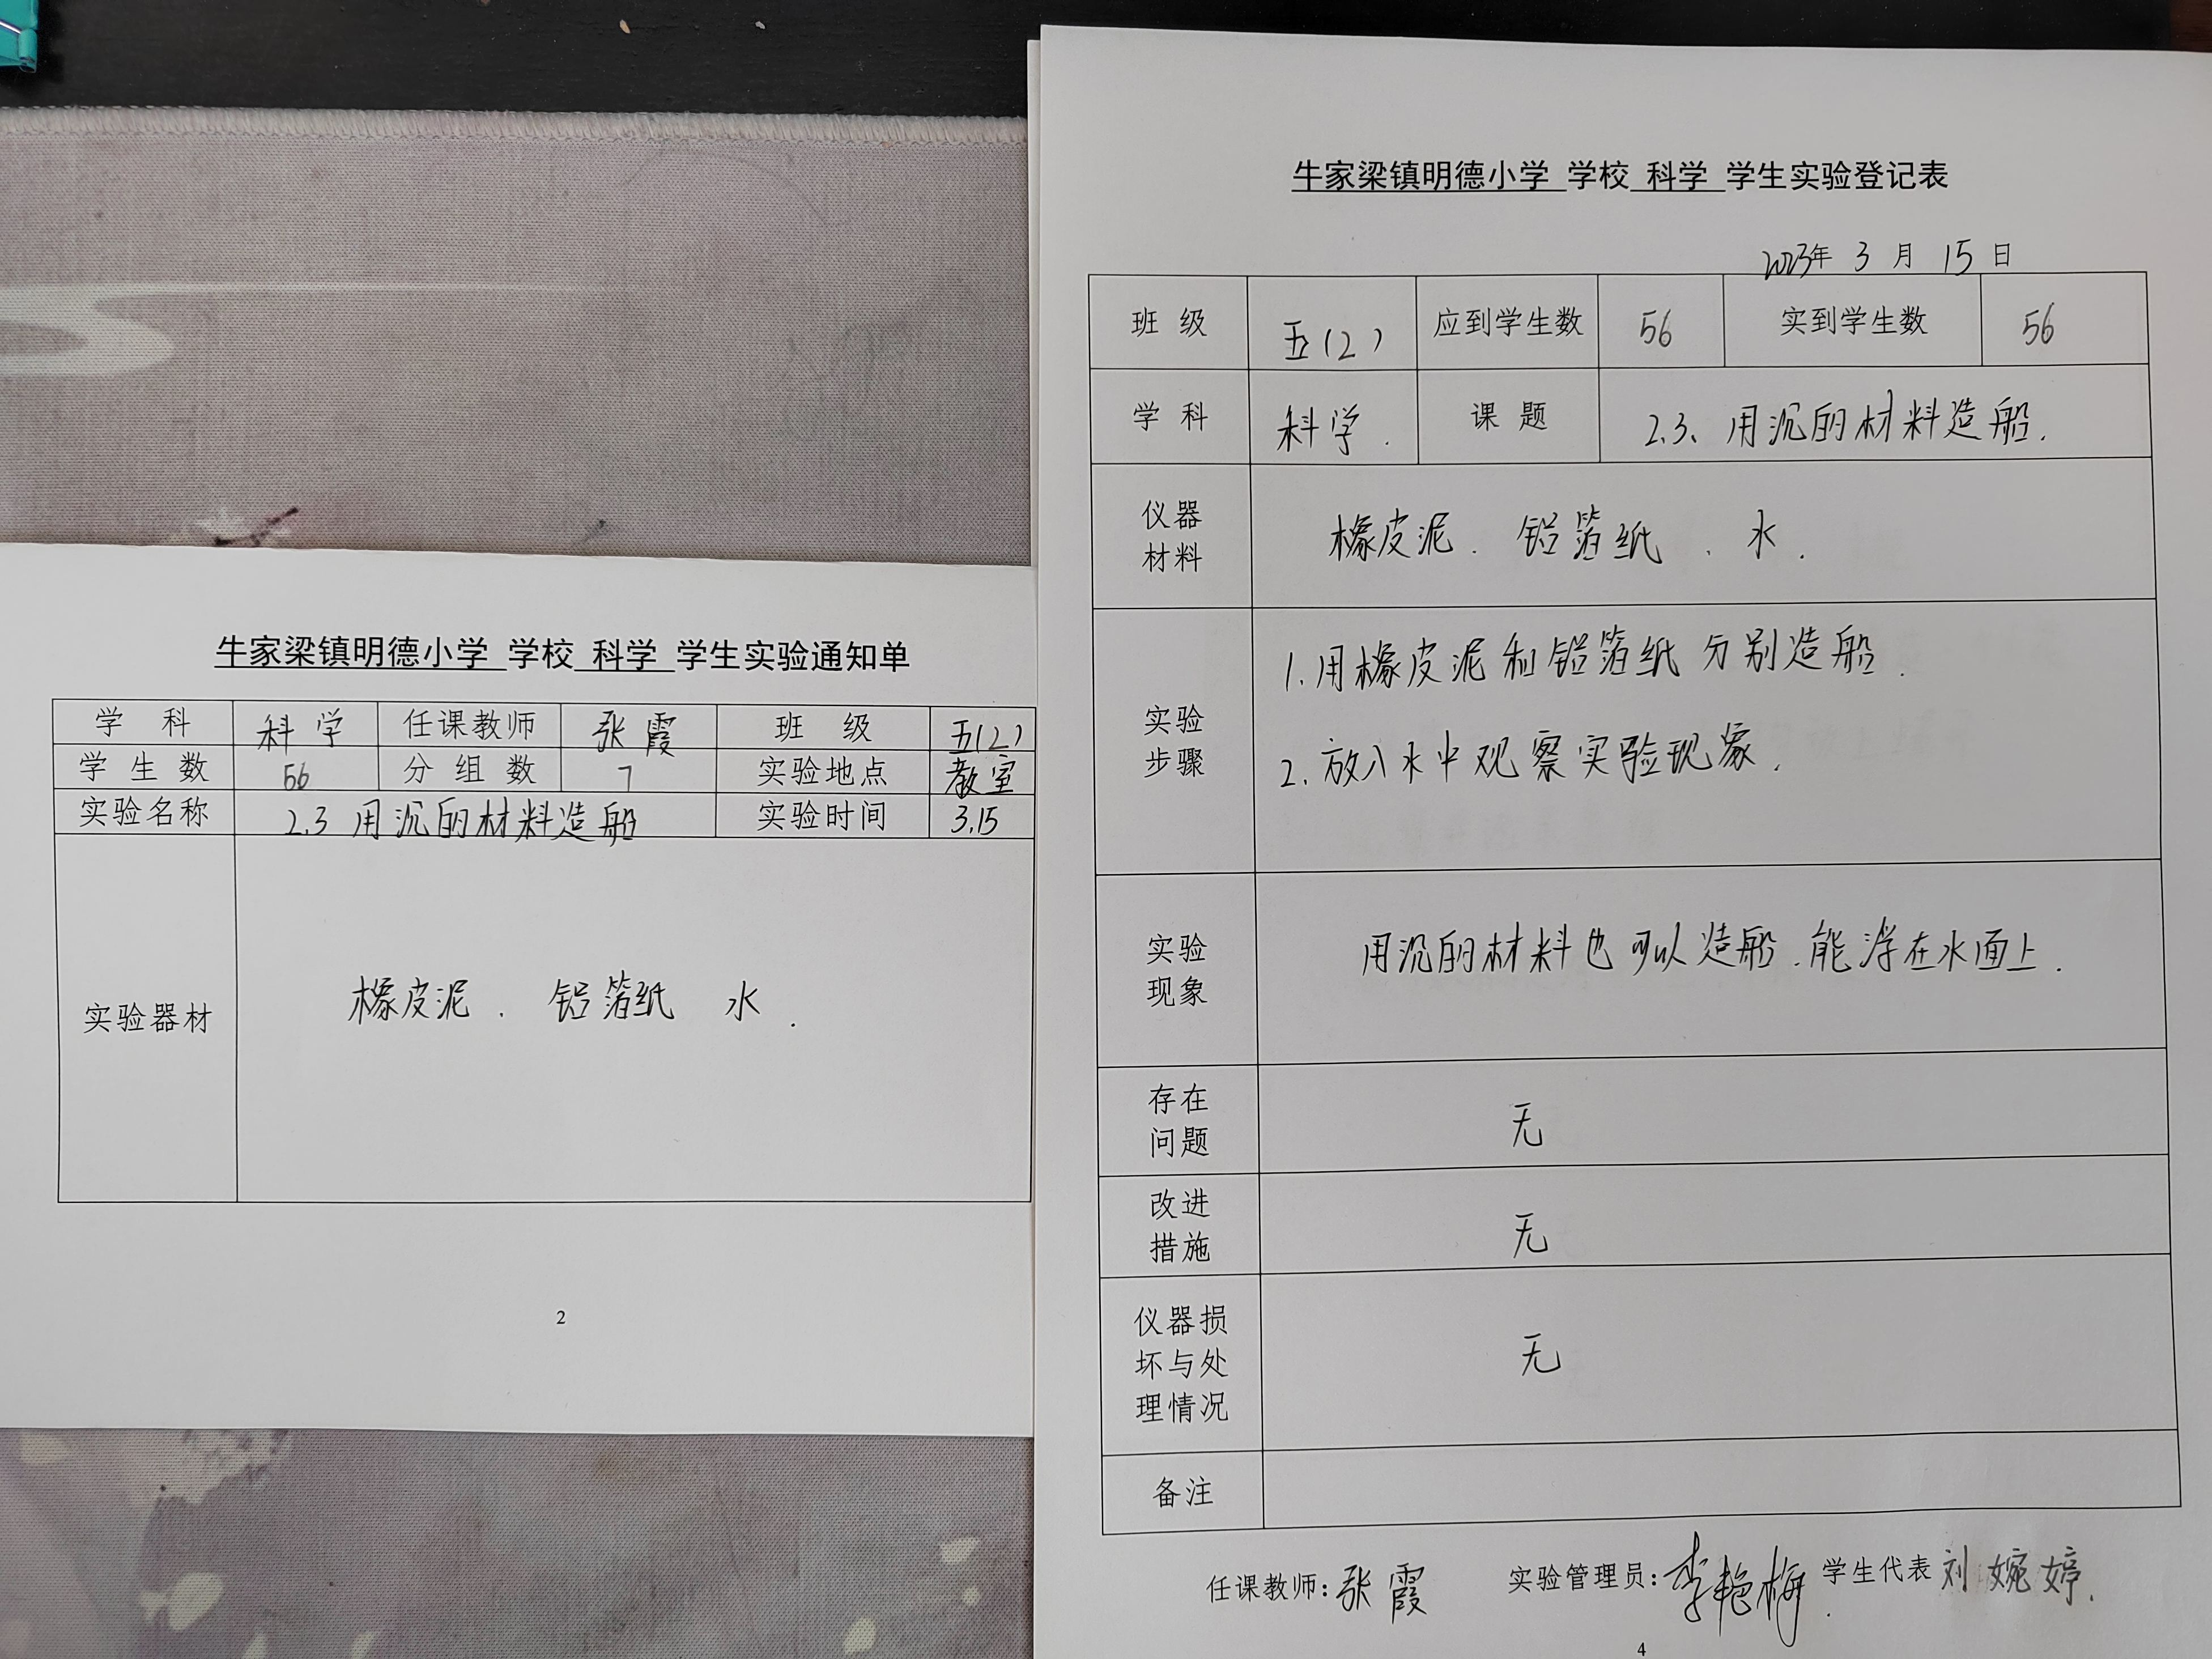 牛家梁镇明德小学 学校 科学 学生实验通知单
学 科 科学 任课教师 张霞 班 级 五(2)
学生数 56 分组数 7 实验地点 教室
实验名称 2.3 用沉的材料造船 实验时间 3.15
实验器材 橡皮泥、铝箔纸 水.
2
牛家梁镇明德小学 学校 科学 学生实验登记表
2023年 3 月 15 日
班 级 五(2) 应到学生数 56 实到学生数 56
学 科 科学. 课 题 2.3、用沉的材料造船.
仪器
材料
橡皮泥、铝箔纸、水.
实验
步骤
1.用橡皮泥和铝箔纸分别造船.
2.放入水中观察实验现象.
实验
现象
用沉的材料也可以造船.能浮在水面上.
存在
问题
无
改进
措施
无
仪器损
坏与处
理情况
无
备注
任课教师:张霞 实验管理员:李艳梅. 学生代表 刘婉婷.
4